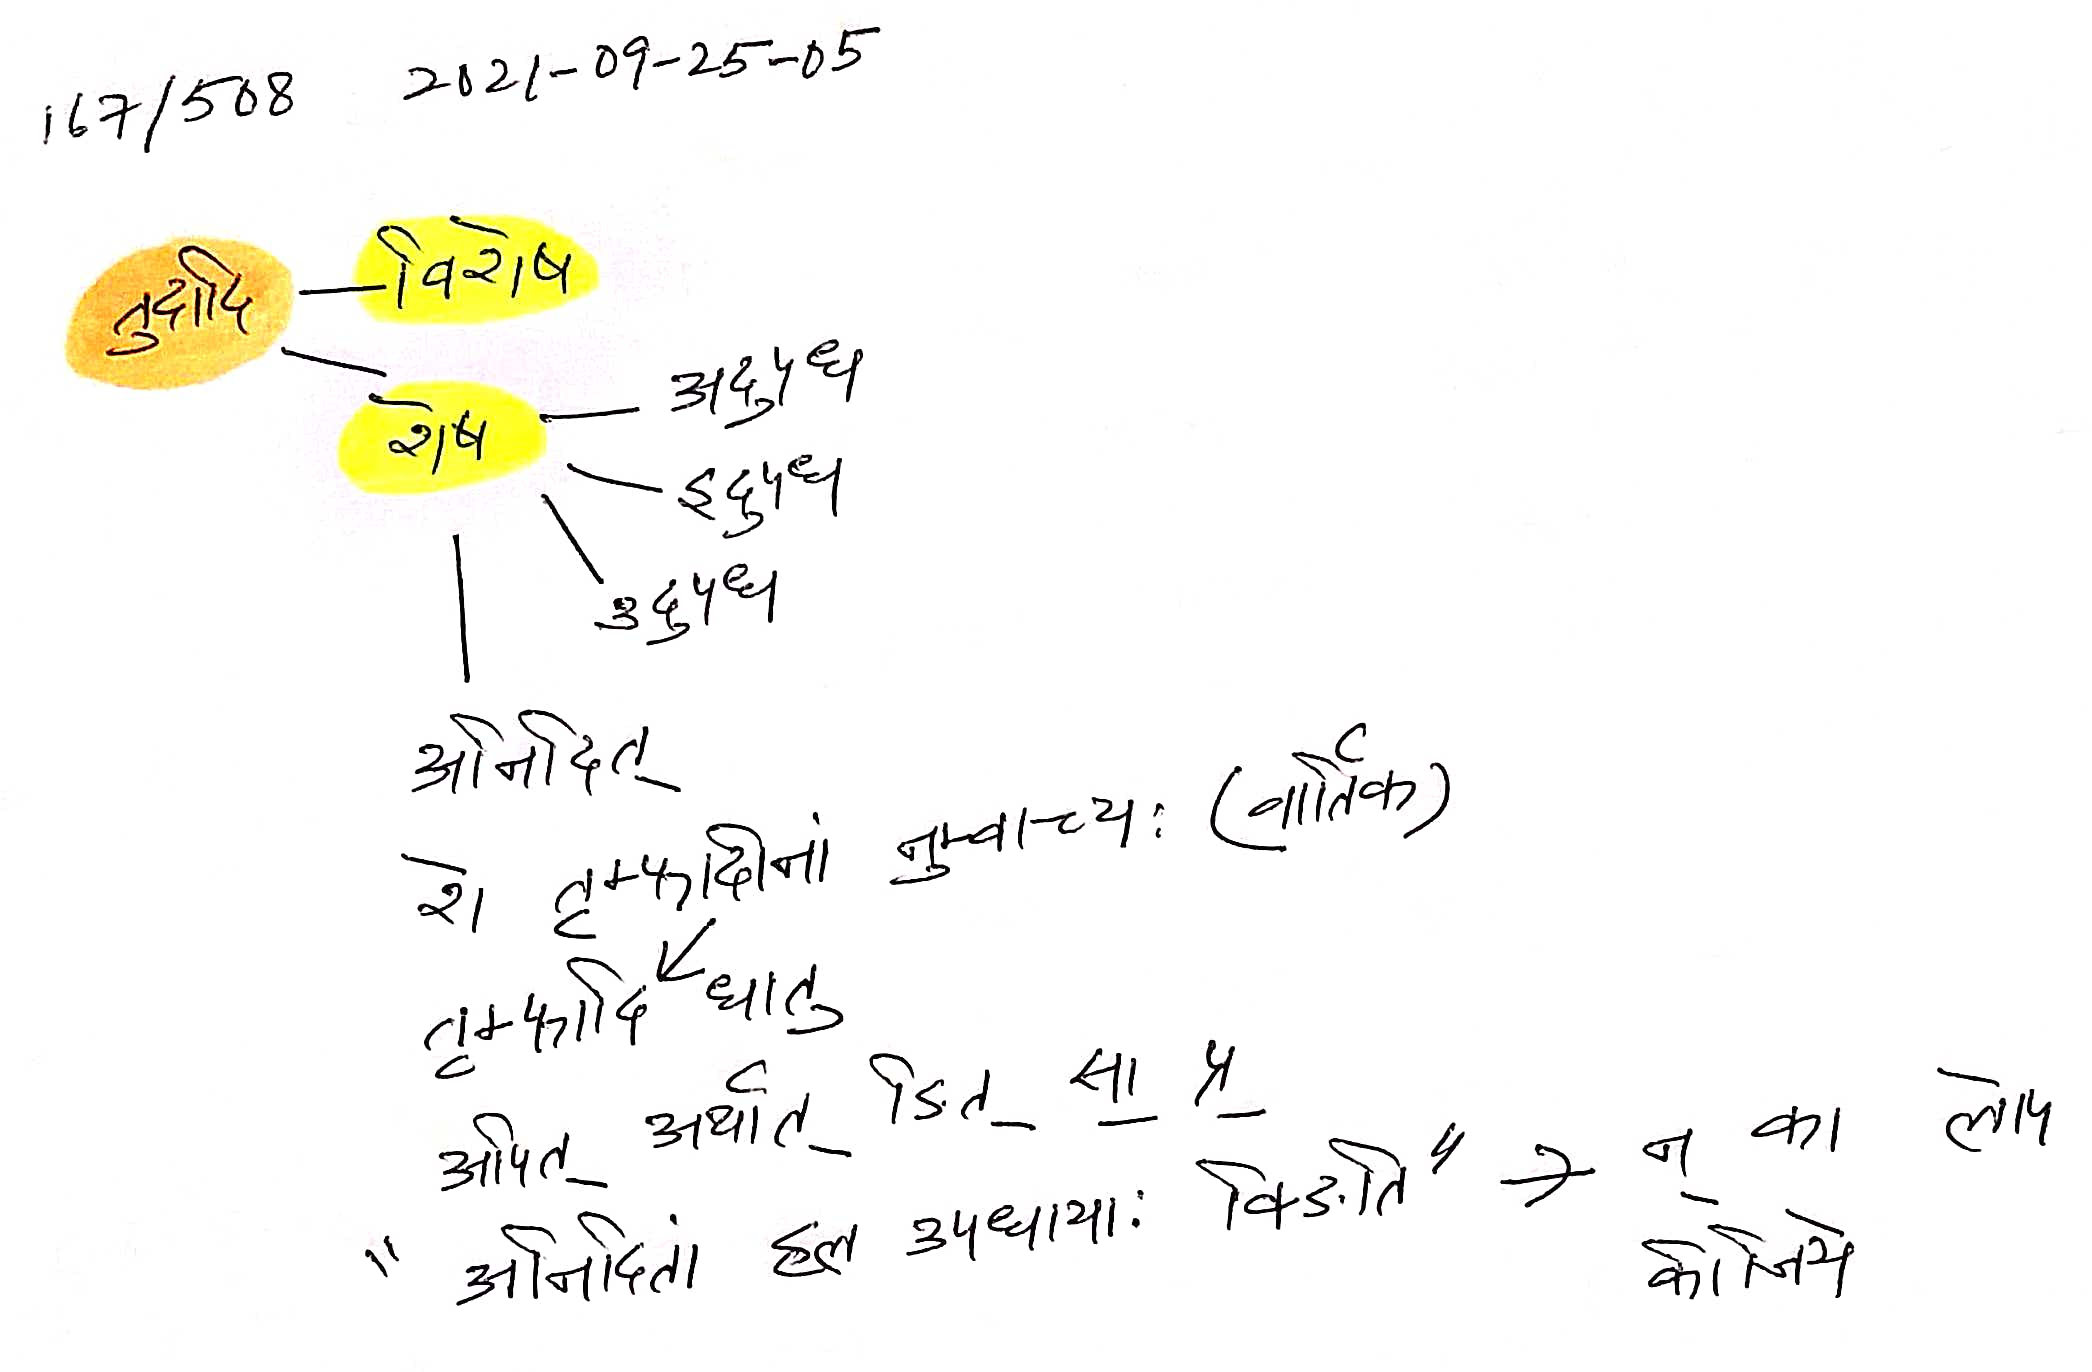 167/508 2021-09-25-05
तुदादि
विशेष
शेष
अदुपध
इदुपध
उदुपध
अनिदित्
शे तृम्फादीनां नुम्वाच्यः (वार्तिक)
तृम्फादि धातु
अपित् अर्थात् ङित् सा प्र
" अनिदितां हल उपधायाः क्ङिति" → न् का लोप
कीजिये